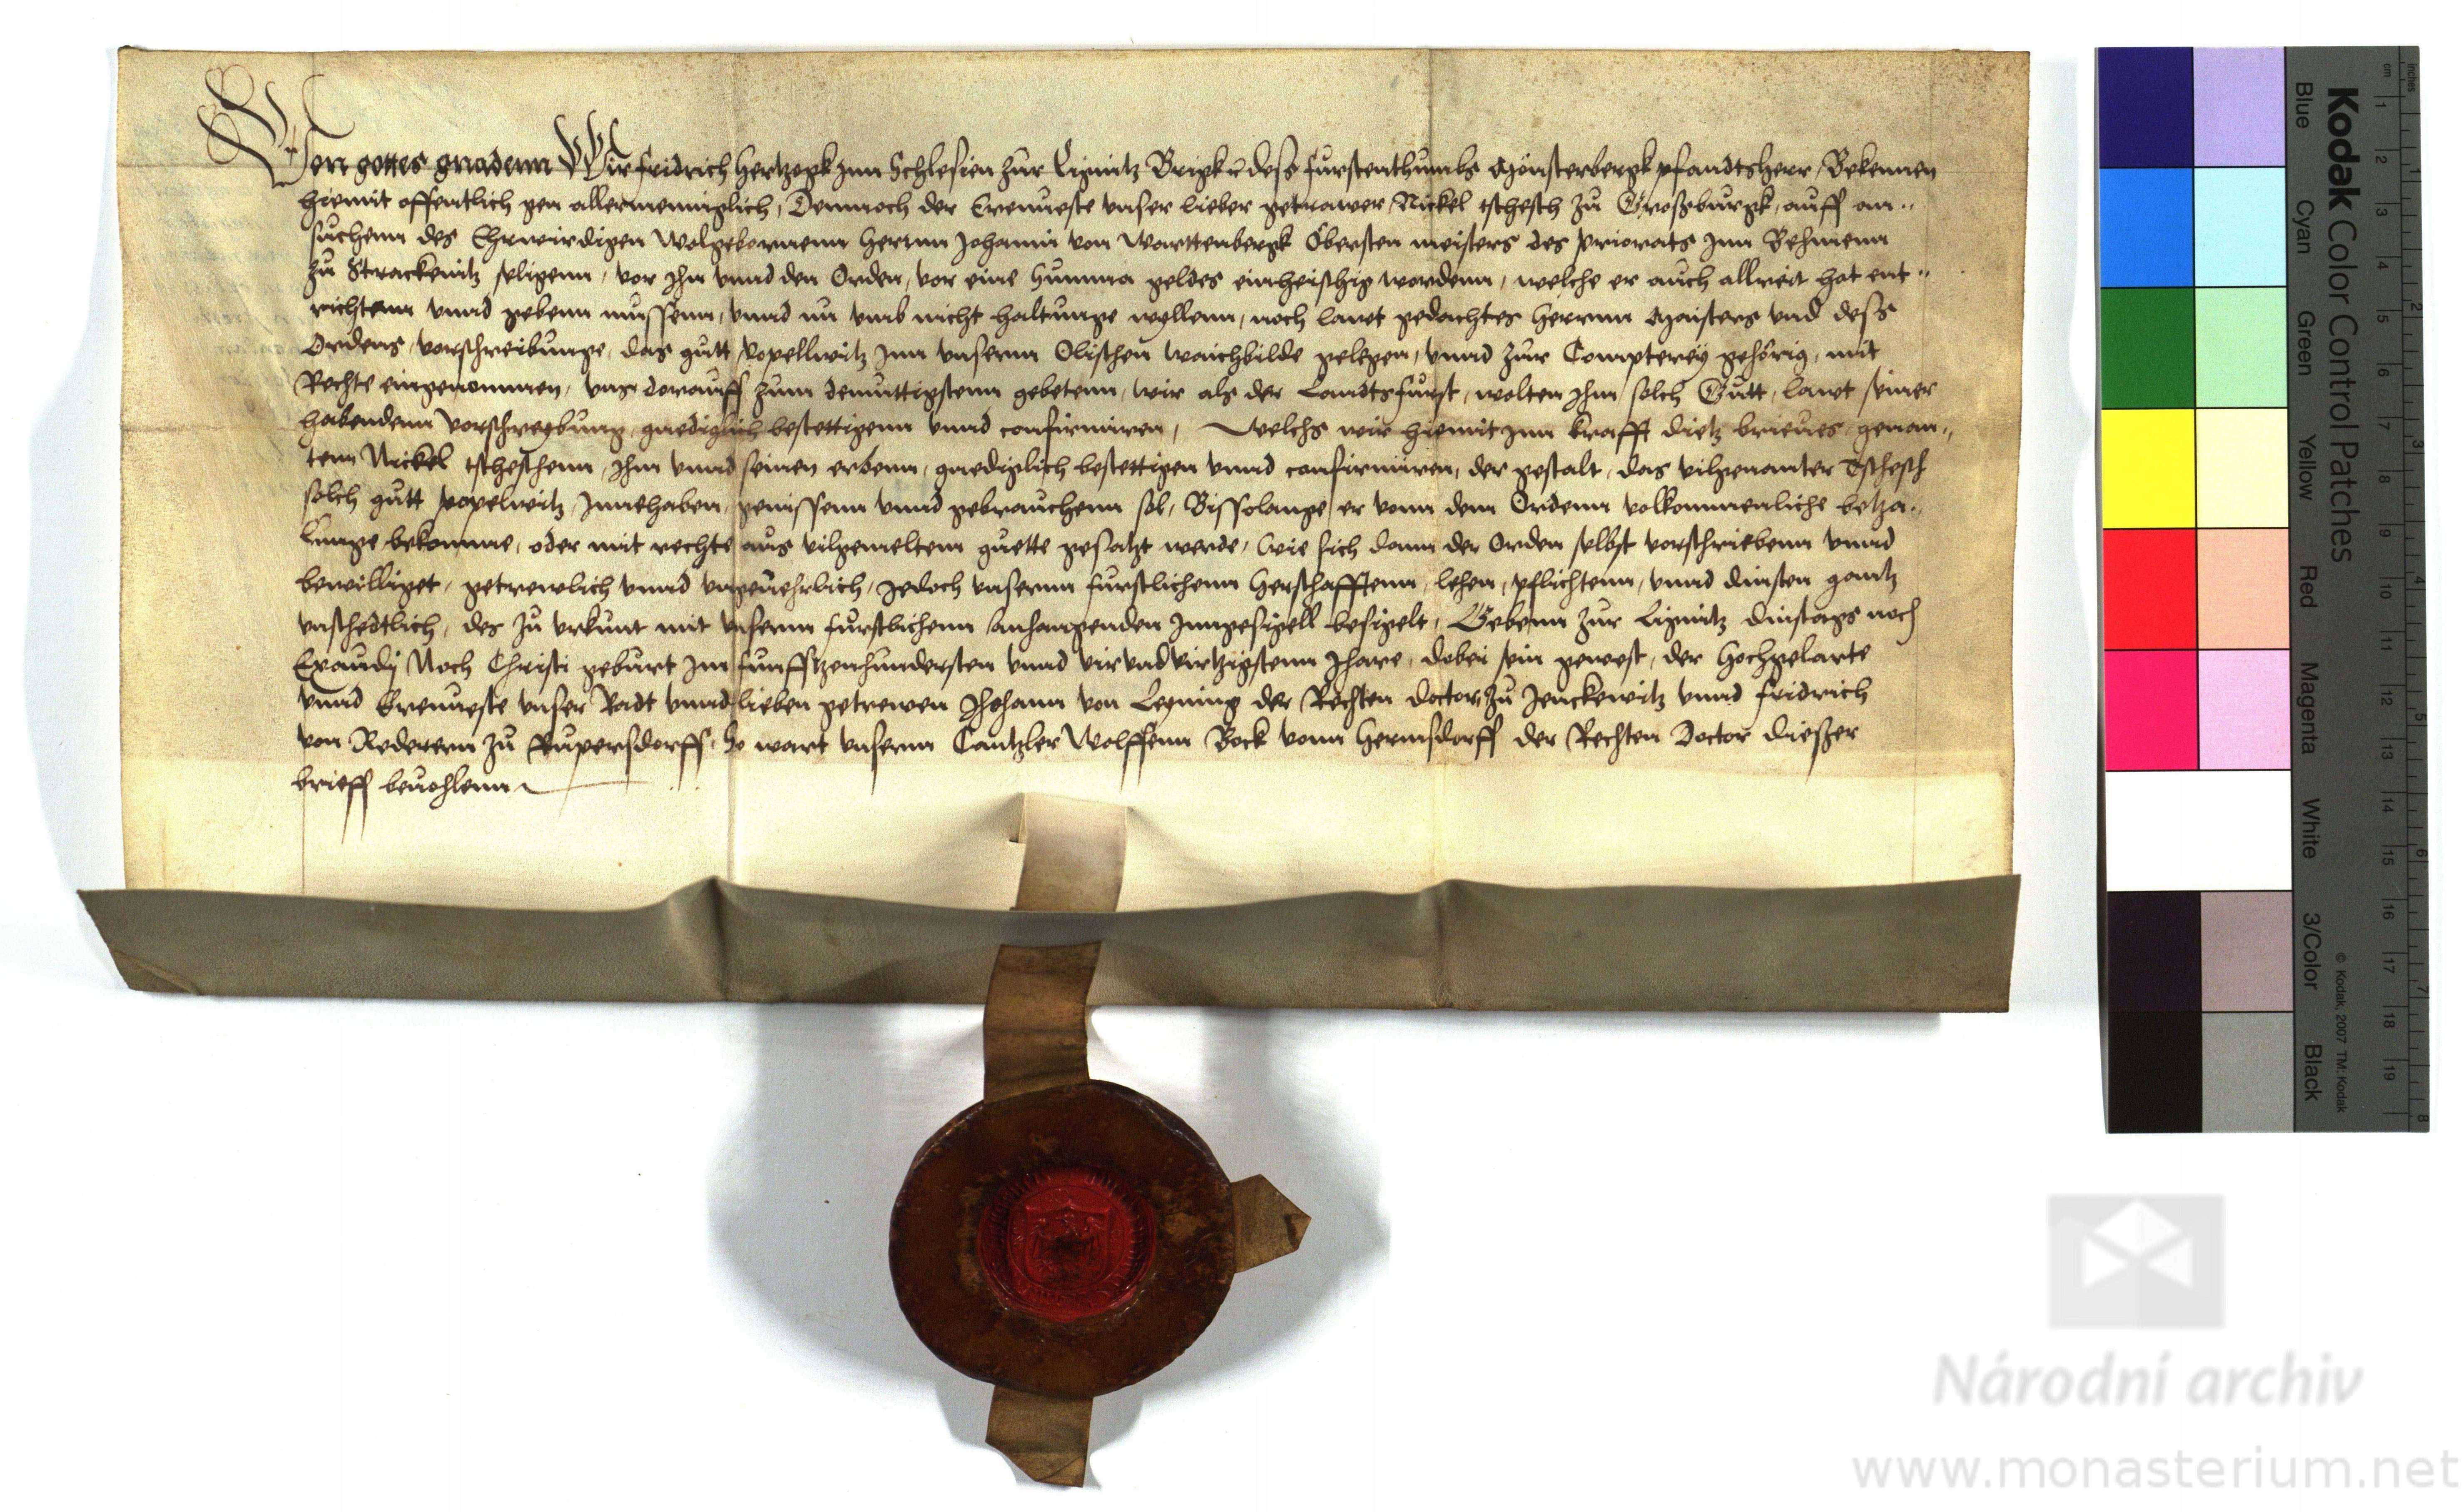 Von gottes gnadenn Wir fridrich Hertzogk inn Schlesien zur Lignitz Brigk u dess furstenthumbs Monsterbergk pfandtsherr, Bekennen
hiemit offentlich gen allermenniglich, Demnoch der Erenueste vnser lieber getrawer, Nickel tschesch zu Großburgk, auff an..
suchenn des Ehrwirdigen Wolgebornenn Herrnn Johann von Warttenbergk Obersten meisters des priorats inn Behmenn
zu Strackenitz seligenn, vor ihn vnnd den Orden, vor eine Summa geldes einheischig wordenn, welche er auch allreit hat ent..
richtenn vnnd gebenn mussenn, vnnd nu vmb nicht haltunge wyllenn, noch lawt gedachtes Herrnn Maisters vnd dess
Ordens, vorschreibunge, das gutt popellwitz inn vnserm Olischen waichbilde gelegen, vnnd zur Compterey gehörig, mit
Rechte eingenommen, vns dorauff zum demuttigstenn gebetenn, wir als der Landtsfurst, wolten ihm solch Gutt, lawt seiner
habendenn vorschreybung gnediglich bestettigenn vnnd confirmiren, Welchs wir hiemit inn krafft dietz brieues genan..
tem Nickel tscheschenn, ihm vnnd seinen erbenn, gnediglich bestettigen vnnd confirmiren, der gestalt, das vilgenanter Tschesch
solch gutt popelwitz, innehaben, genissenn vnnd gebrauchenn sol, Bissolange er vonn dem Ordenn volkommenliche betza..
lunge bekomme, oder mit rechte aus vilgemeltem guette gesatzt werde, wie sich dann der Orden selbst vorschriebenn vnnd
bewilliget, getrewlich vnnd vngeuehrlich, Jedoch vnsernn furstlichenn Herschafftenn, lehen, pflichtenn, vnnd dinsten gantz
vnschedtlich, des zu vrkunt mit vnserm furstlichenn anhangenden Inngesigell besigelt, Gebenn zur Lignitz dinstags noch
Exaudy Noch Christi geburt im funfftzenhundersten vnnd virvndvirtzigstenn Jhare, dobei sein gewest, der Hochgelarte
vnnd Erenueste vnser Radt vnnd lieben getrewen Jhohann von Leyning der Rechten doctor zu Jenckewitz vnnd fridrich
von Rederenn zu Rupersdorff, So wart vnserm Cantzler Wolffenn Bock vonn Hermsdorff der Rechten Doctor dießer
brieff beuohlenn
Kodak Color Control Patches
Blue Cyan Green Yellow Red Magenta White 3/Color Black
© Kodak, 2007 TM: Kodak
cm 1 2 3 4 5 6 7 8 9 10 11 12 13 14 15 16 17 18 19
inches 1 2 3 4 5 6 7 8
Národní archiv
www.monasterium.net